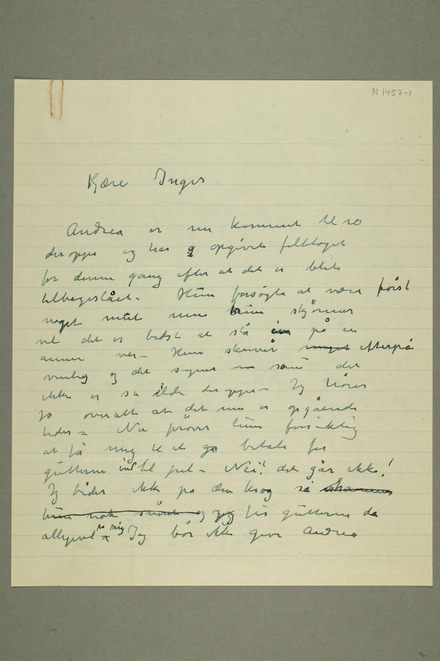 N 1457-1
Kære Inger
Andrea er nu kommet til ro
deroppe og har opgivet felttoget
for denne gang efter at det er blet
tilbageslået. Hun forsøgte at være först
noget men skjönner
vel det er bedst at slå på en
annen Hun skriver meget efterpå
venlig og det synes som det
ikke er så ilde deroppe. Jeg hörer
jo overalt at det nu er opgående
tider. Nu pröver hun forsiktig
at få mig til at betale for
gutterne indtil jul. Nei! det går ikke!
Jeg bider ikke på den krog så
hun nok og jeg guttene da
allige vel mig Jeg bör ikke give Andrea